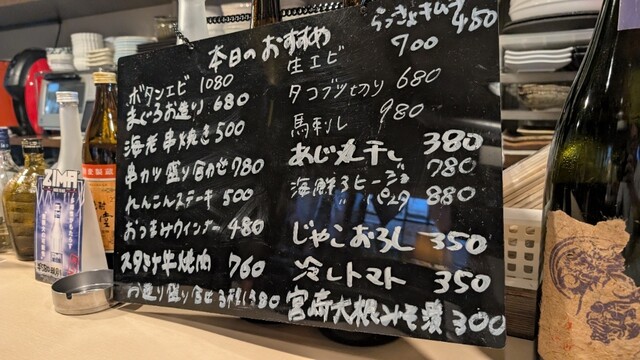 本日のおすすめ
ボタンエビ 1080
まぐろお造り 680
海老串焼き 500
串カツ盛り合わせ 780
れんこんステーキ 500
おつまみウインナー 480
スタミナ牛焼肉 760
お造り盛り合せ3種 1480
らっきょキムチ 450
生エビ 700
タコブツ切り 680
馬刺し 980
あじ丸干し 380
海鮮アヒージョ 780
〃 パスタ 880
じゃこおろし 350
冷しトマト 350
宮崎大根みそ漬 300
ZIMA